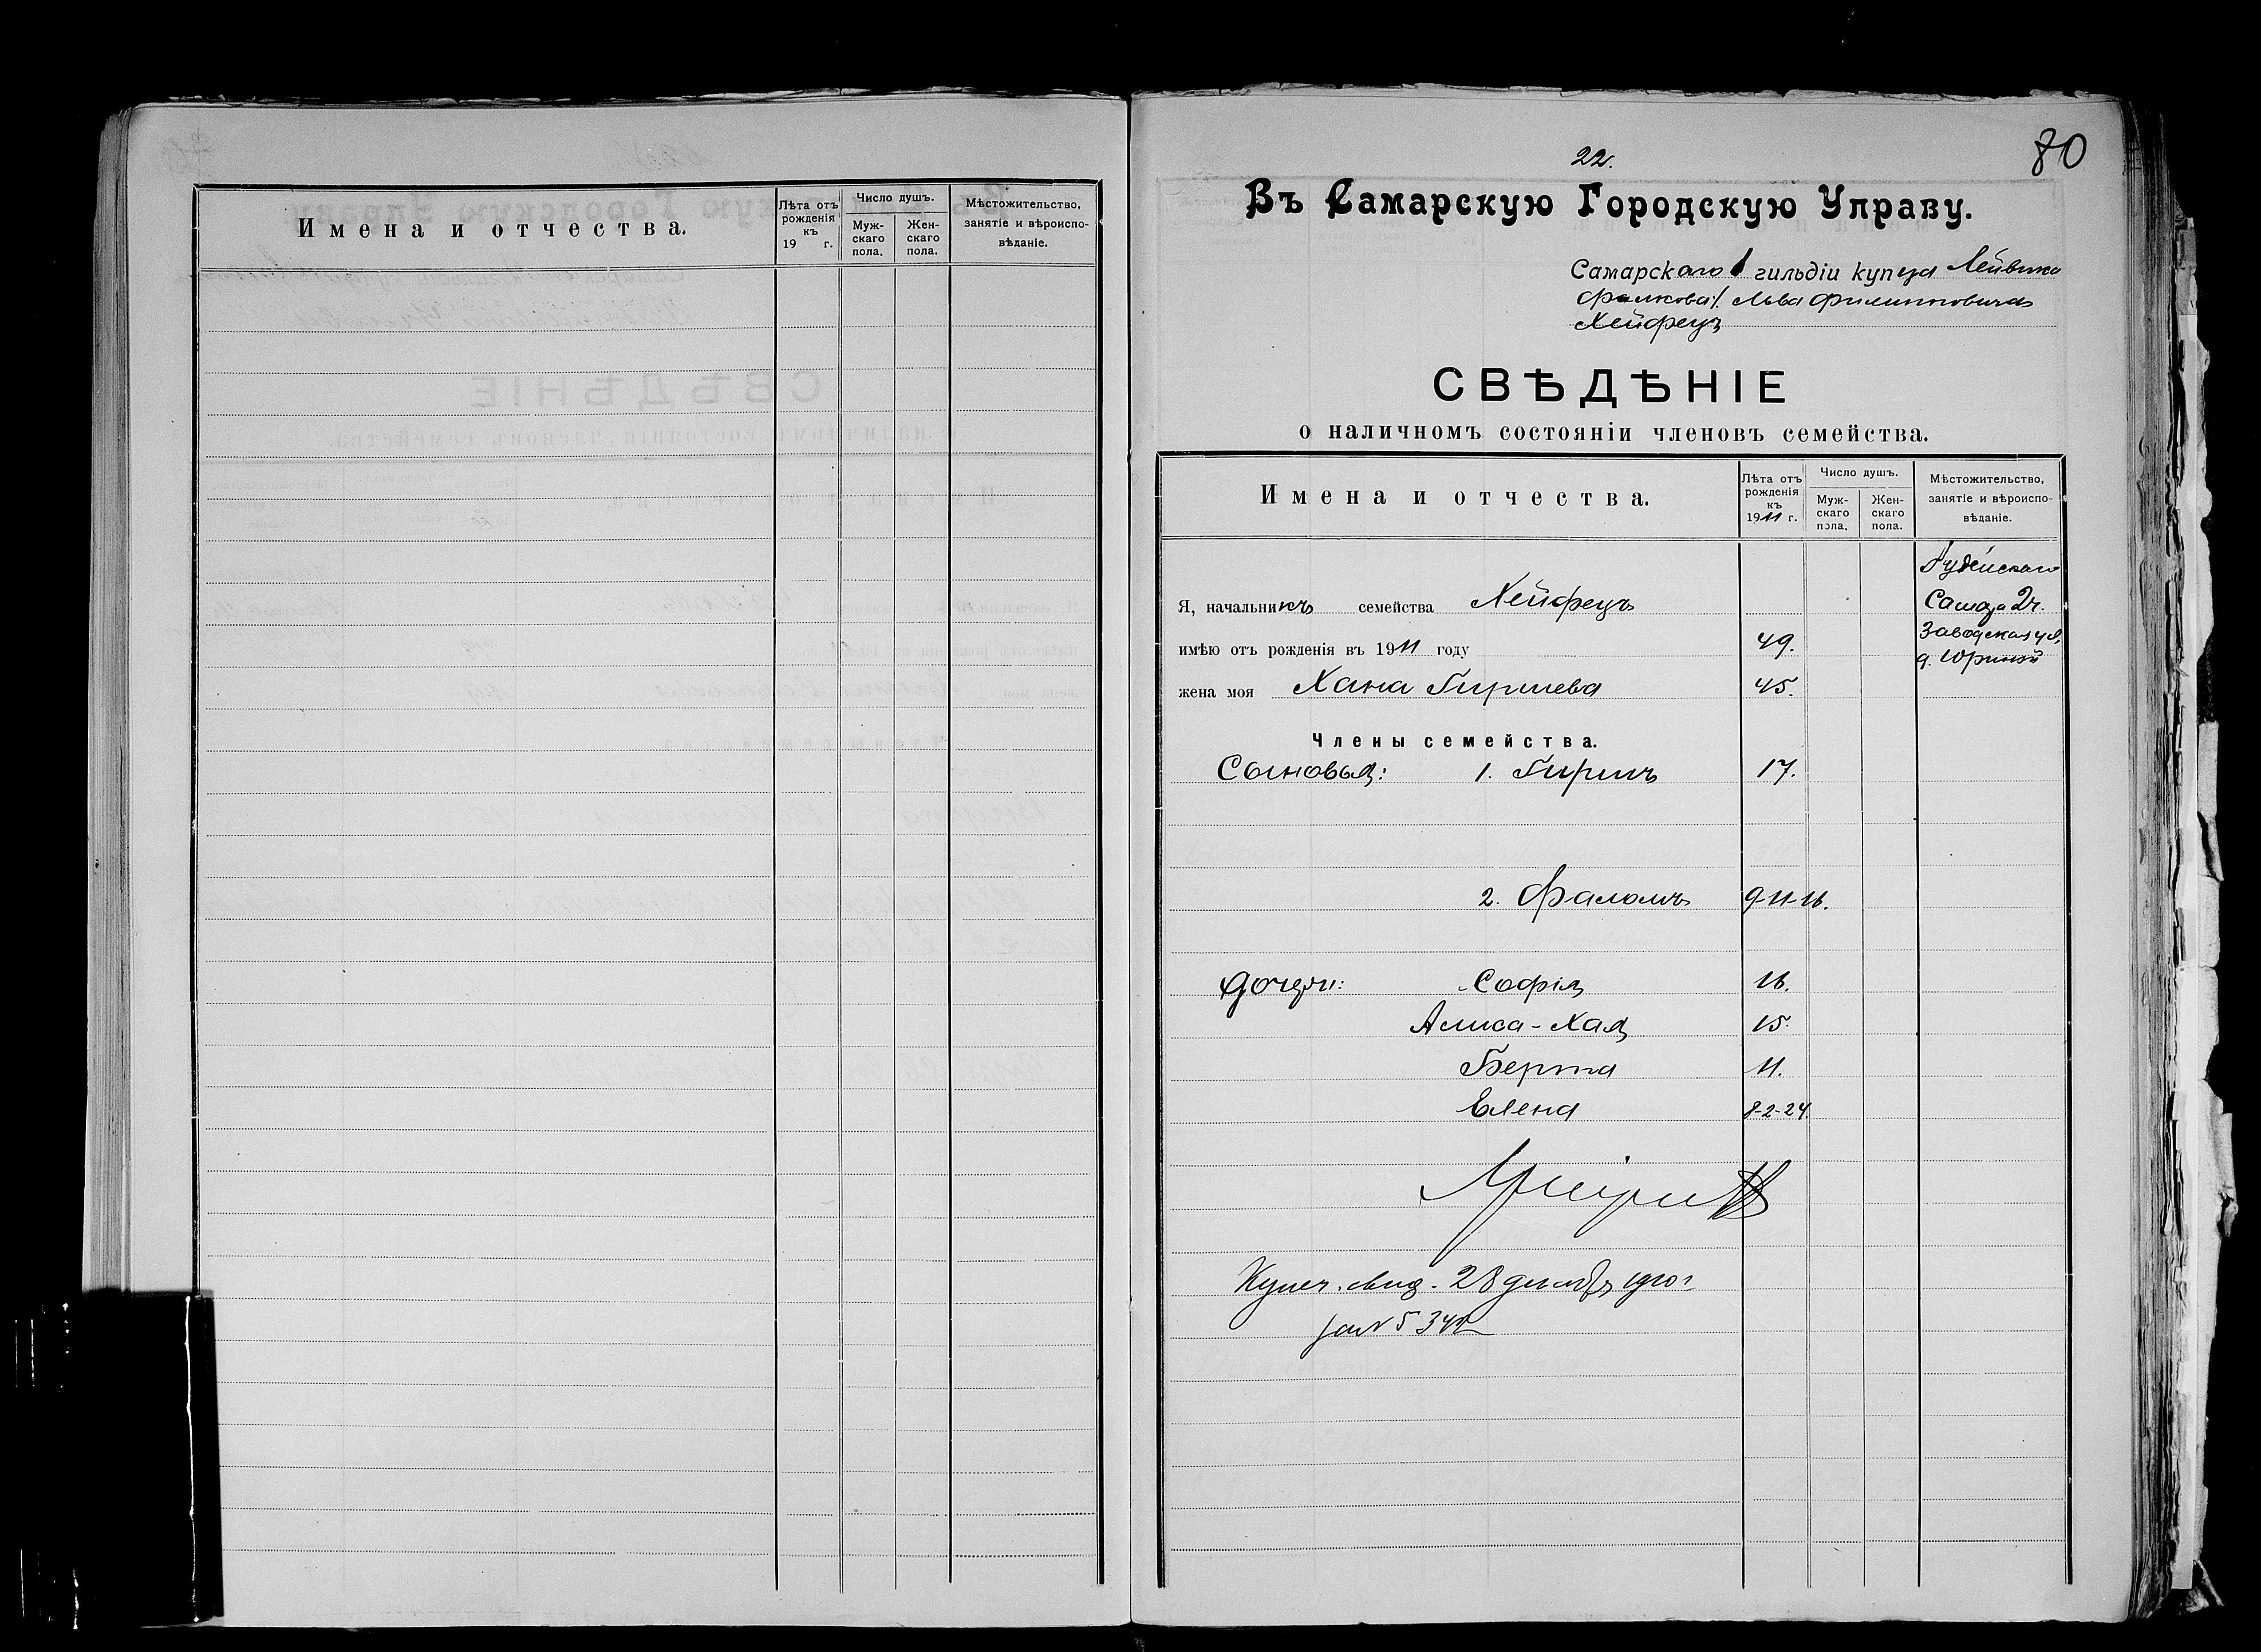 Имена и отчества.
Лѣта отъ рожденія къ 19 г.
Число душъ.
Муж-скаго пола.
Жен-скаго пола.
Мѣстожительство, занятіе и вѣроиспо-вѣданіе.
22.
80
Въ Самарскую Городскую Управу.
Самарскаго 1 гильдіи купца Лейвика
Фалкова /. Льва Филипповича
Хейфецъ
СВѢДѢНІЕ
о наличномъ состояніи членовъ семейства.
Имена и отчества.
Лѣта отъ рожденія къ 1911 г.
Число душъ.
Муж-скаго пола.
Жен-скаго пола.
Мѣстожительство, занятіе и вѣроиспо-вѣданіе.
Іудейскаго
Я, начальникъ семейства Хейфецъ
Самара 2ч.
Заводская ул,
имѣю отъ рожденія въ 1911 году 49.
д. Юриной
жена моя Хана Гиршева 45.
Члены семейства.
Сыновья: 1. Гиршъ 17.
2. Фаломъ 9-11-16.
Дочери: Софія 16.
Алиса-Хая 15.
Берта 11.
Елена 8-2-24.
Купеч. свид. 28 декабря 1910 г
за № 5342